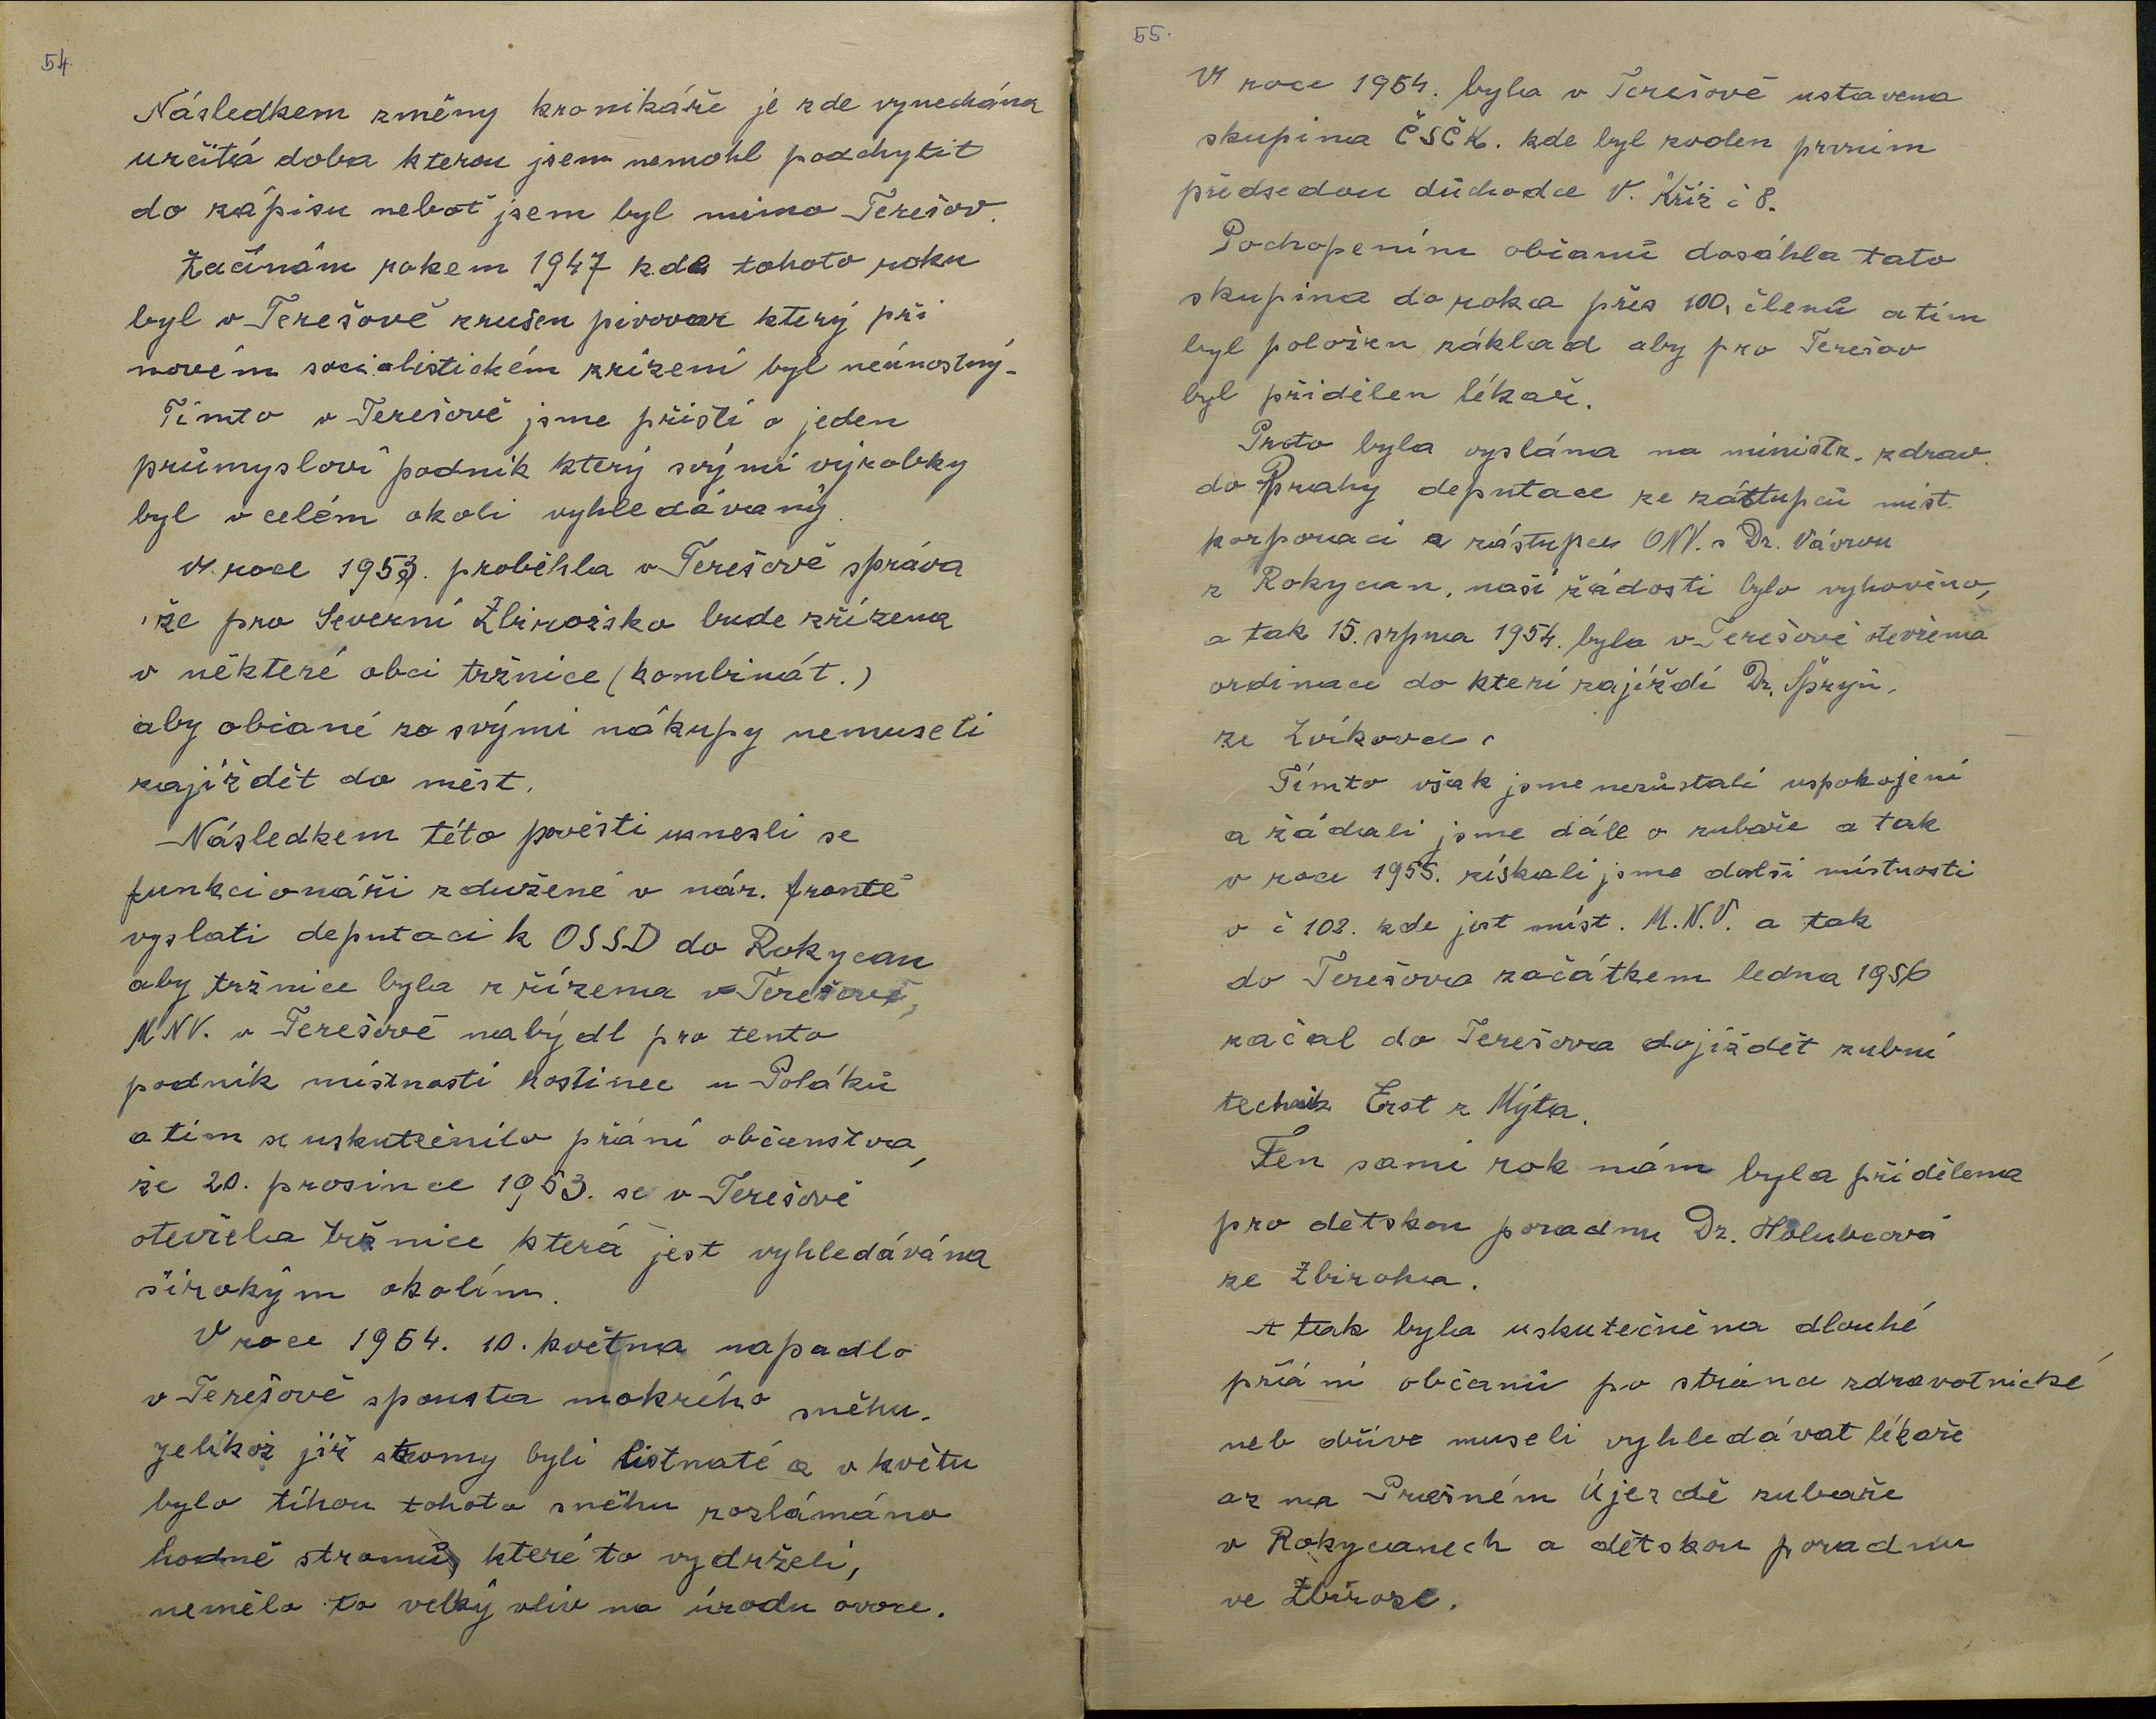 54.
Následkem změny kronikáře je zde vynechána
určitá doba kterou jsem nemohl podchytit
do zápisu neboť jsem byl mimo Terešov.
Začínám rokem 1947 kde tohoto roku
byl v Terešově zrušen pivovar který při
novém socialistickém zřízení byl neúnostný.
Tímto v Terešově jsme přisti o jeden
průmysloví podnik který svými výrobky
byl v celém okoli vyhledávaný.
V roce 1953. proběhla v Terešově správa
že pro Severní Zbirožsko bude zřízena
v některé obci tržnice (kombinát.)
aby občané za svými nákupy nemuseli
zajíždět do měst.
Následkem této pověsti usnesli se
funkcionáři zdužené v nár. frontě
vyslati deputaci k OSSD do Rokycan
aby tržnice byla zřízena v Terešově,
MNV. v Terešově nabýdl pro tento
podnik místnosti hostinec u Poláků
a tím se uskutečnilo přání občanstva,
že 20. prosince 1953. se v Terešově
otevřela tržnice která jest vyhledávána
širokým okolím.
V roce 1954. 10. května napadlo
v Terešově spousta mokrého sněhu.
jelikož již stromy byli listnaté a v květu
bylo tíhou tohoto sněhu rozlámáno
hodně stromů, které to vydrželi,
nemělo to velký vliv na úrodu ovoce.
55.
V roce 1954. byla v Terešově ustavena
skupina ČSČK. kde byl zvolen prvním
předsedou důchodce V. Kříž č 8.
Pochopením občanů dosáhla tato
skupina do roka přes 100, členů a tím
byl položen základ aby pro Terešov
byl přidělen lékař.
Proto byla vyslána na ministr. zdrav.
do Prahy deputace ze zástupců míst.
korporací a zástupce ONV. s Dr. Vávrou
z Rokycan, naší žádosti bylo vyhověno,
a tak 15. srpna 1954. byla v Terešově otevřena
ordinace do kteri zajíždí Dr. Špryň,
ze Zvíkovce.
Tímto však jsme nezůstali uspokojeni
a žádali jsme dále o zubaře a tak
v roce 1955. získali jsme další místnosti
v č 102. kde jest míst. M.N.V. a tak
do Terešova začátkem ledna 1956
začal do Terešova dojíždět zubní
technik Erst z Mýta.
Ten sami rok nám byla přidělena
pro dětskou poradnu Dr. Holubcová
ze Zbiroha.
A tak byla uskutečněna dlouhé
přání občanů po stránce zdravotnické
neb dříve museli vyhledávat lékaře
až na Prašném Újezdě zubaře
v Rokycanech a dětskou poradnu
ve Zbiroze.